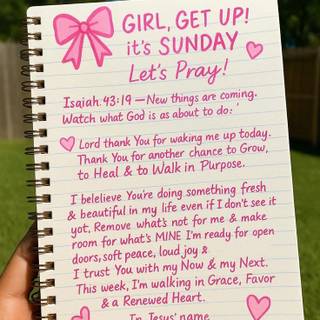 GIRL, GET UP!
it's SUNDAY
Let's Pray!
Isaiah.43:19 — New things are coming.
Watch what God is as about to do:
Lord thank You for waking me up today.
Thank You for another chance to Grow,
to Heal & to Walk in Purpose.
I belelieve You're doing something fresh
& beautiful in my life even if I don't see it
yot, Remove what's not for me & make
room for what's MINE I'm ready for open
doors, soft peace, loud joy &
I trust You with my Now & my Next.
This week, I'm walking in Grace, Favor
& a Renewed Heart.
In Jesus' name